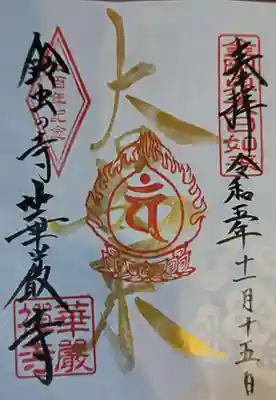 奉拝 令和五年十一月十五日
大日如来
百年記念
鈴虫の寺 華厳寺
華嚴禪寺